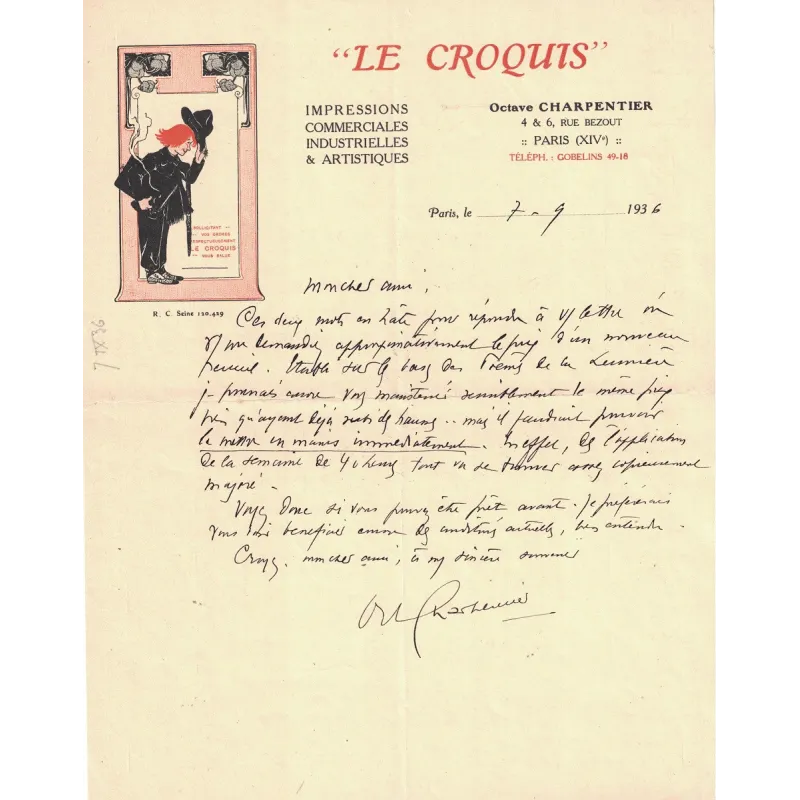 "LE CROQUIS"
IMPRESSIONS
COMMERCIALES
INDUSTRIELLES
& ARTISTIQUES
Octave CHARPENTIER
4 & 6, RUE BEZOUT
:: PARIS (XIVe) ::
TÉLÉPH. : GOBELINS 49-18
SOLLICITANT
VOS ORDRES
RESPECTUEUSEMENT
LE CROQUIS
VOUS SALUE
R. C. Seine 120.429
Paris, le 7 - 9 1936
Mon cher ami,
Ces deux mots en hâte pour répondre à v/ lettre où
v/ me demandez approximativement le prix d'un nouveau
recueil. Etablie sur la base des Poèmes de la Lumière
je pensais encore vous maintenir sensiblement le même prix
bien qu'ayant déjà subi des hausses .. mais il faudrait pouvoir
le mettre en mains immédiatement. En effet, dès l'application
de la semaine de 40 heures tout va se trouver assez copieusement
majoré.
Voyez donc si vous pouvez être prêt avant. Je préférerais
vous voir bénéficier encore des conditions actuelles, bien entendu.
Croyez, mon cher ami, à my sincère souvenir
Oct Charpentier
7 IX 36